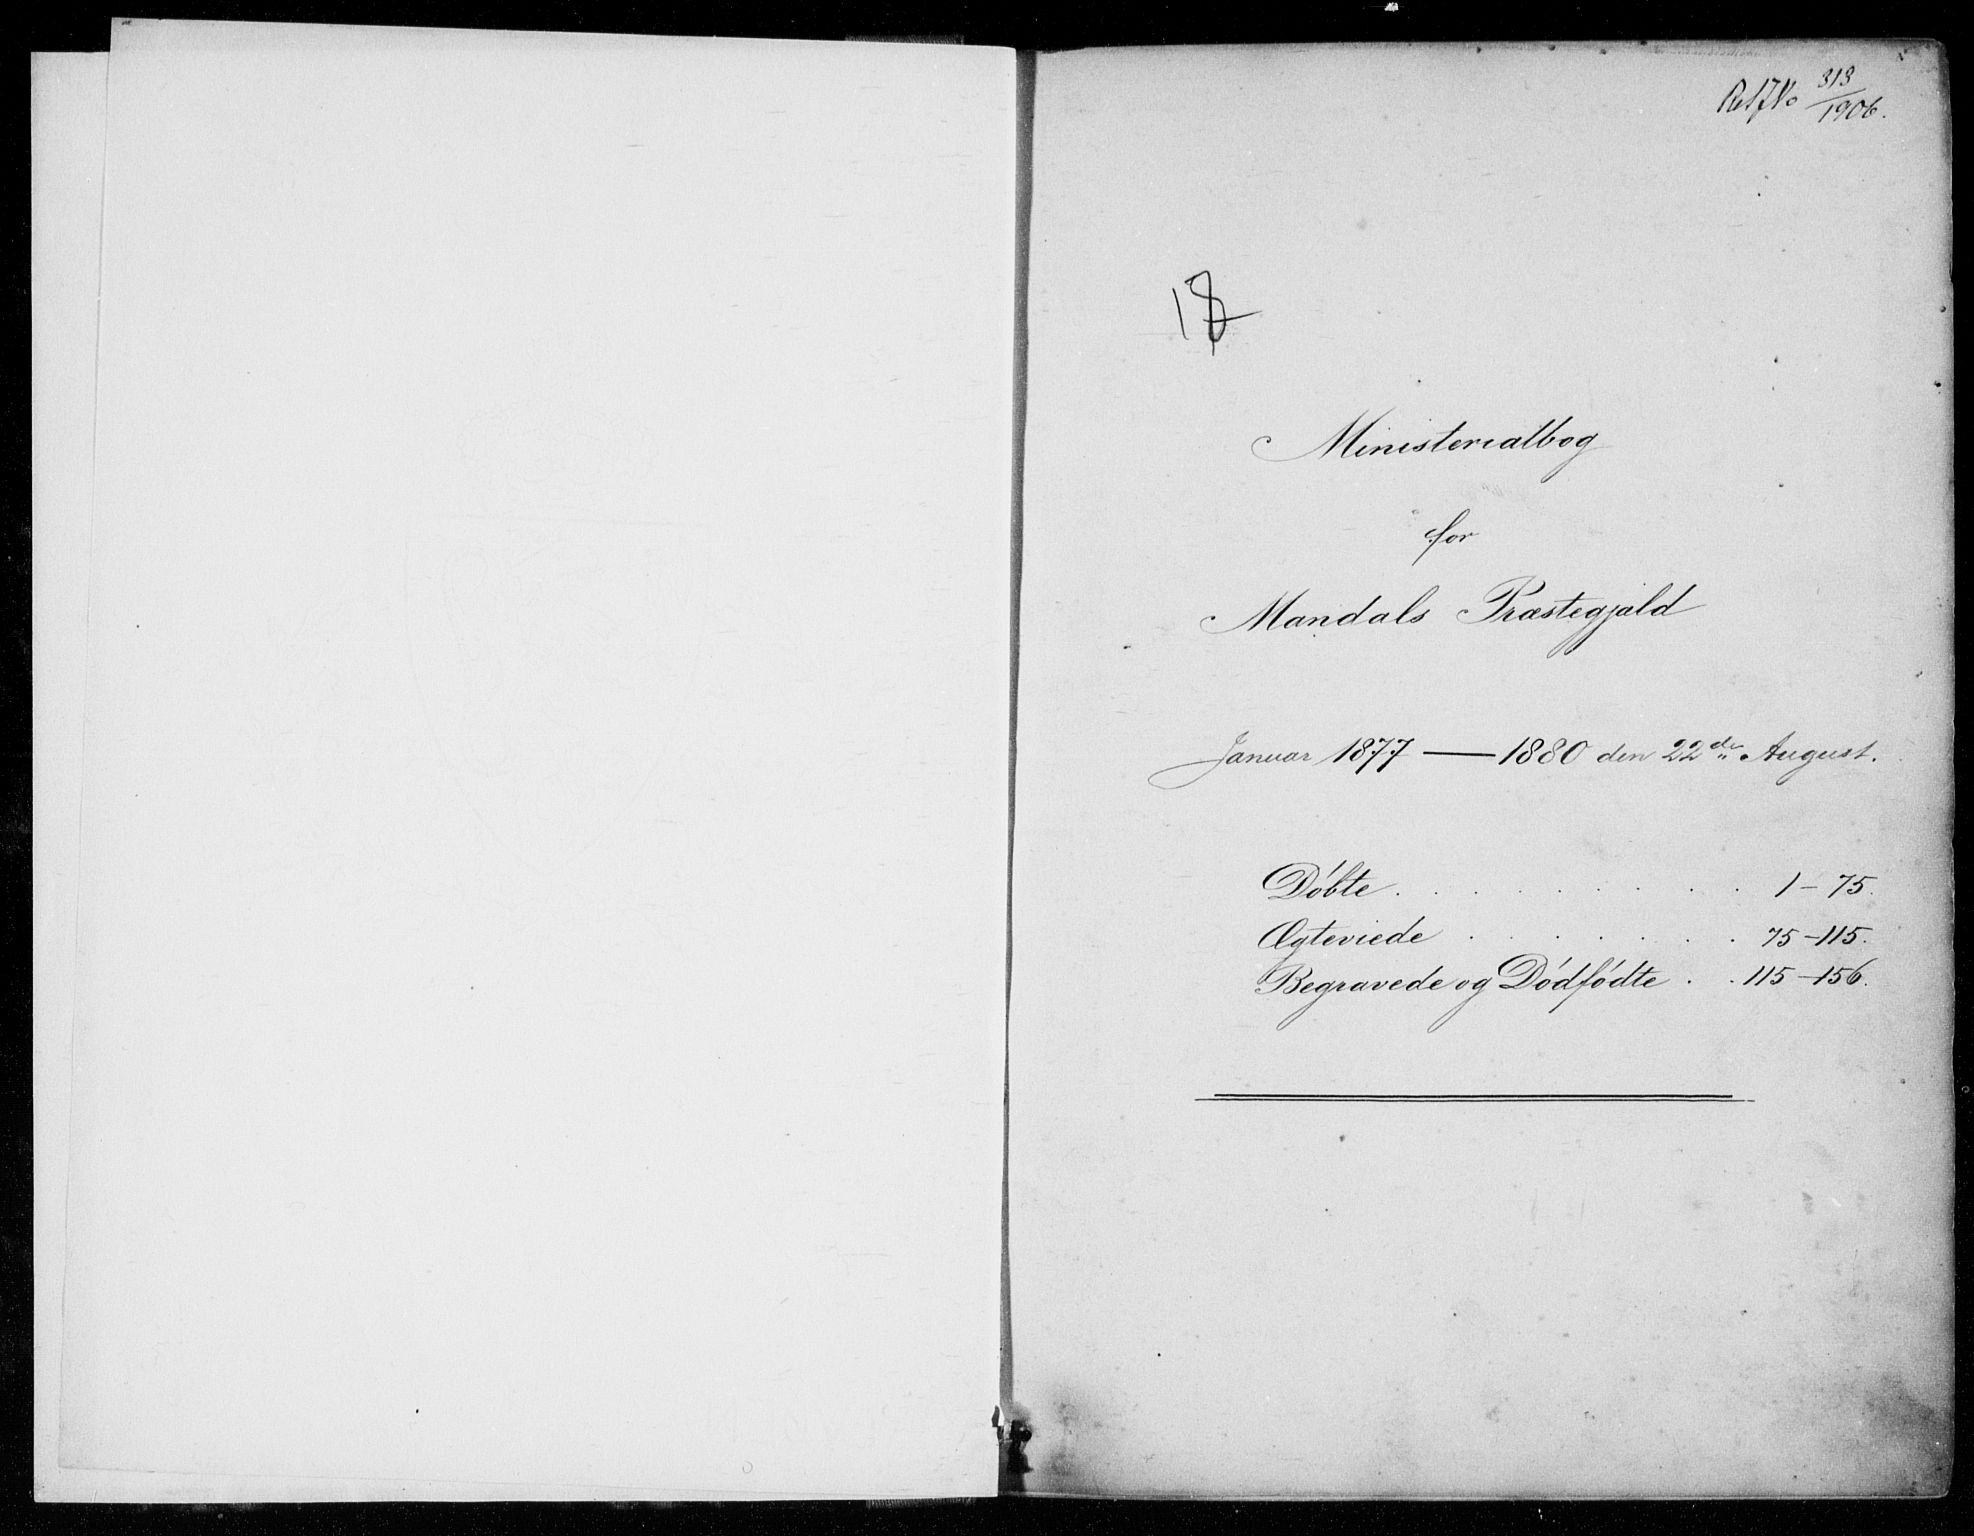 313
1906.
Ministerialbog
for
Mandals Præstegjald
Januar 1877 — 1880 den 22de August.
Döbte . . . . . . . . . 1 – 75.
Ægteviede . . . . . . . 75 – 115.
Begravede og Dödfödte . . 115 – 156.